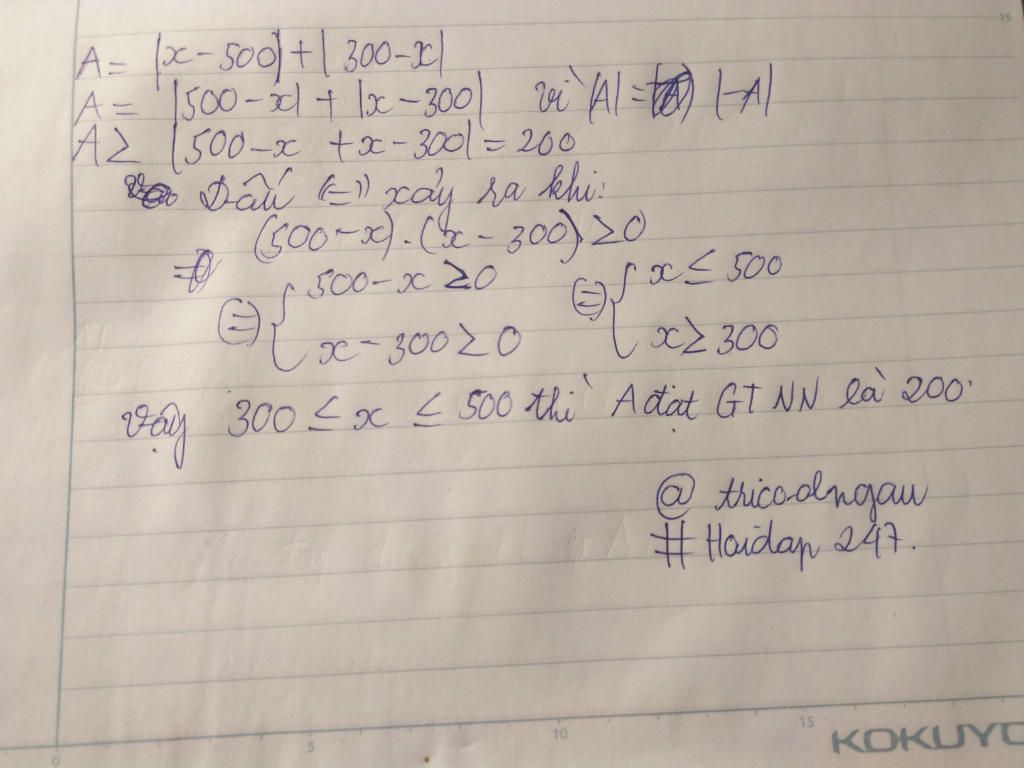 15
A = |x - 500| + | 300 - x|
A = |500 - x| + |x - 300| vì |A| = |-A|
A ≥ |500 - x + x - 300| = 200
Dấu "=" xảy ra khi:
(500 - x) . (x - 300) ≥ 0
(=) { 500 - x ≥ 0 (=) { x ≤ 500
x - 300 ≥ 0 x ≥ 300
Vậy 300 ≤ x ≤ 500 thì A đạt GTNN là 200.
@ thicodngau
# Hoidap 247.
0 5 10 15
KOKUYO